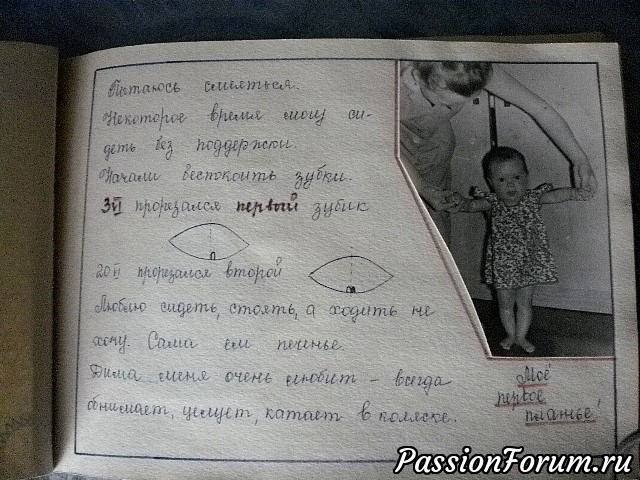 Пытаюсь смеяться.
Некоторое время могу си-
деть без поддержки.
Начали беспокоить зубки.
3 VI прорезался первый зубик
20 VI прорезался второй
Люблю сидеть, стоять, а ходить не
хочу. Сама ем печенье.
Дима меня очень любит – всегда
обнимает, целует, катает в коляске.
Моё
первое
платье!
PassionForum.ru